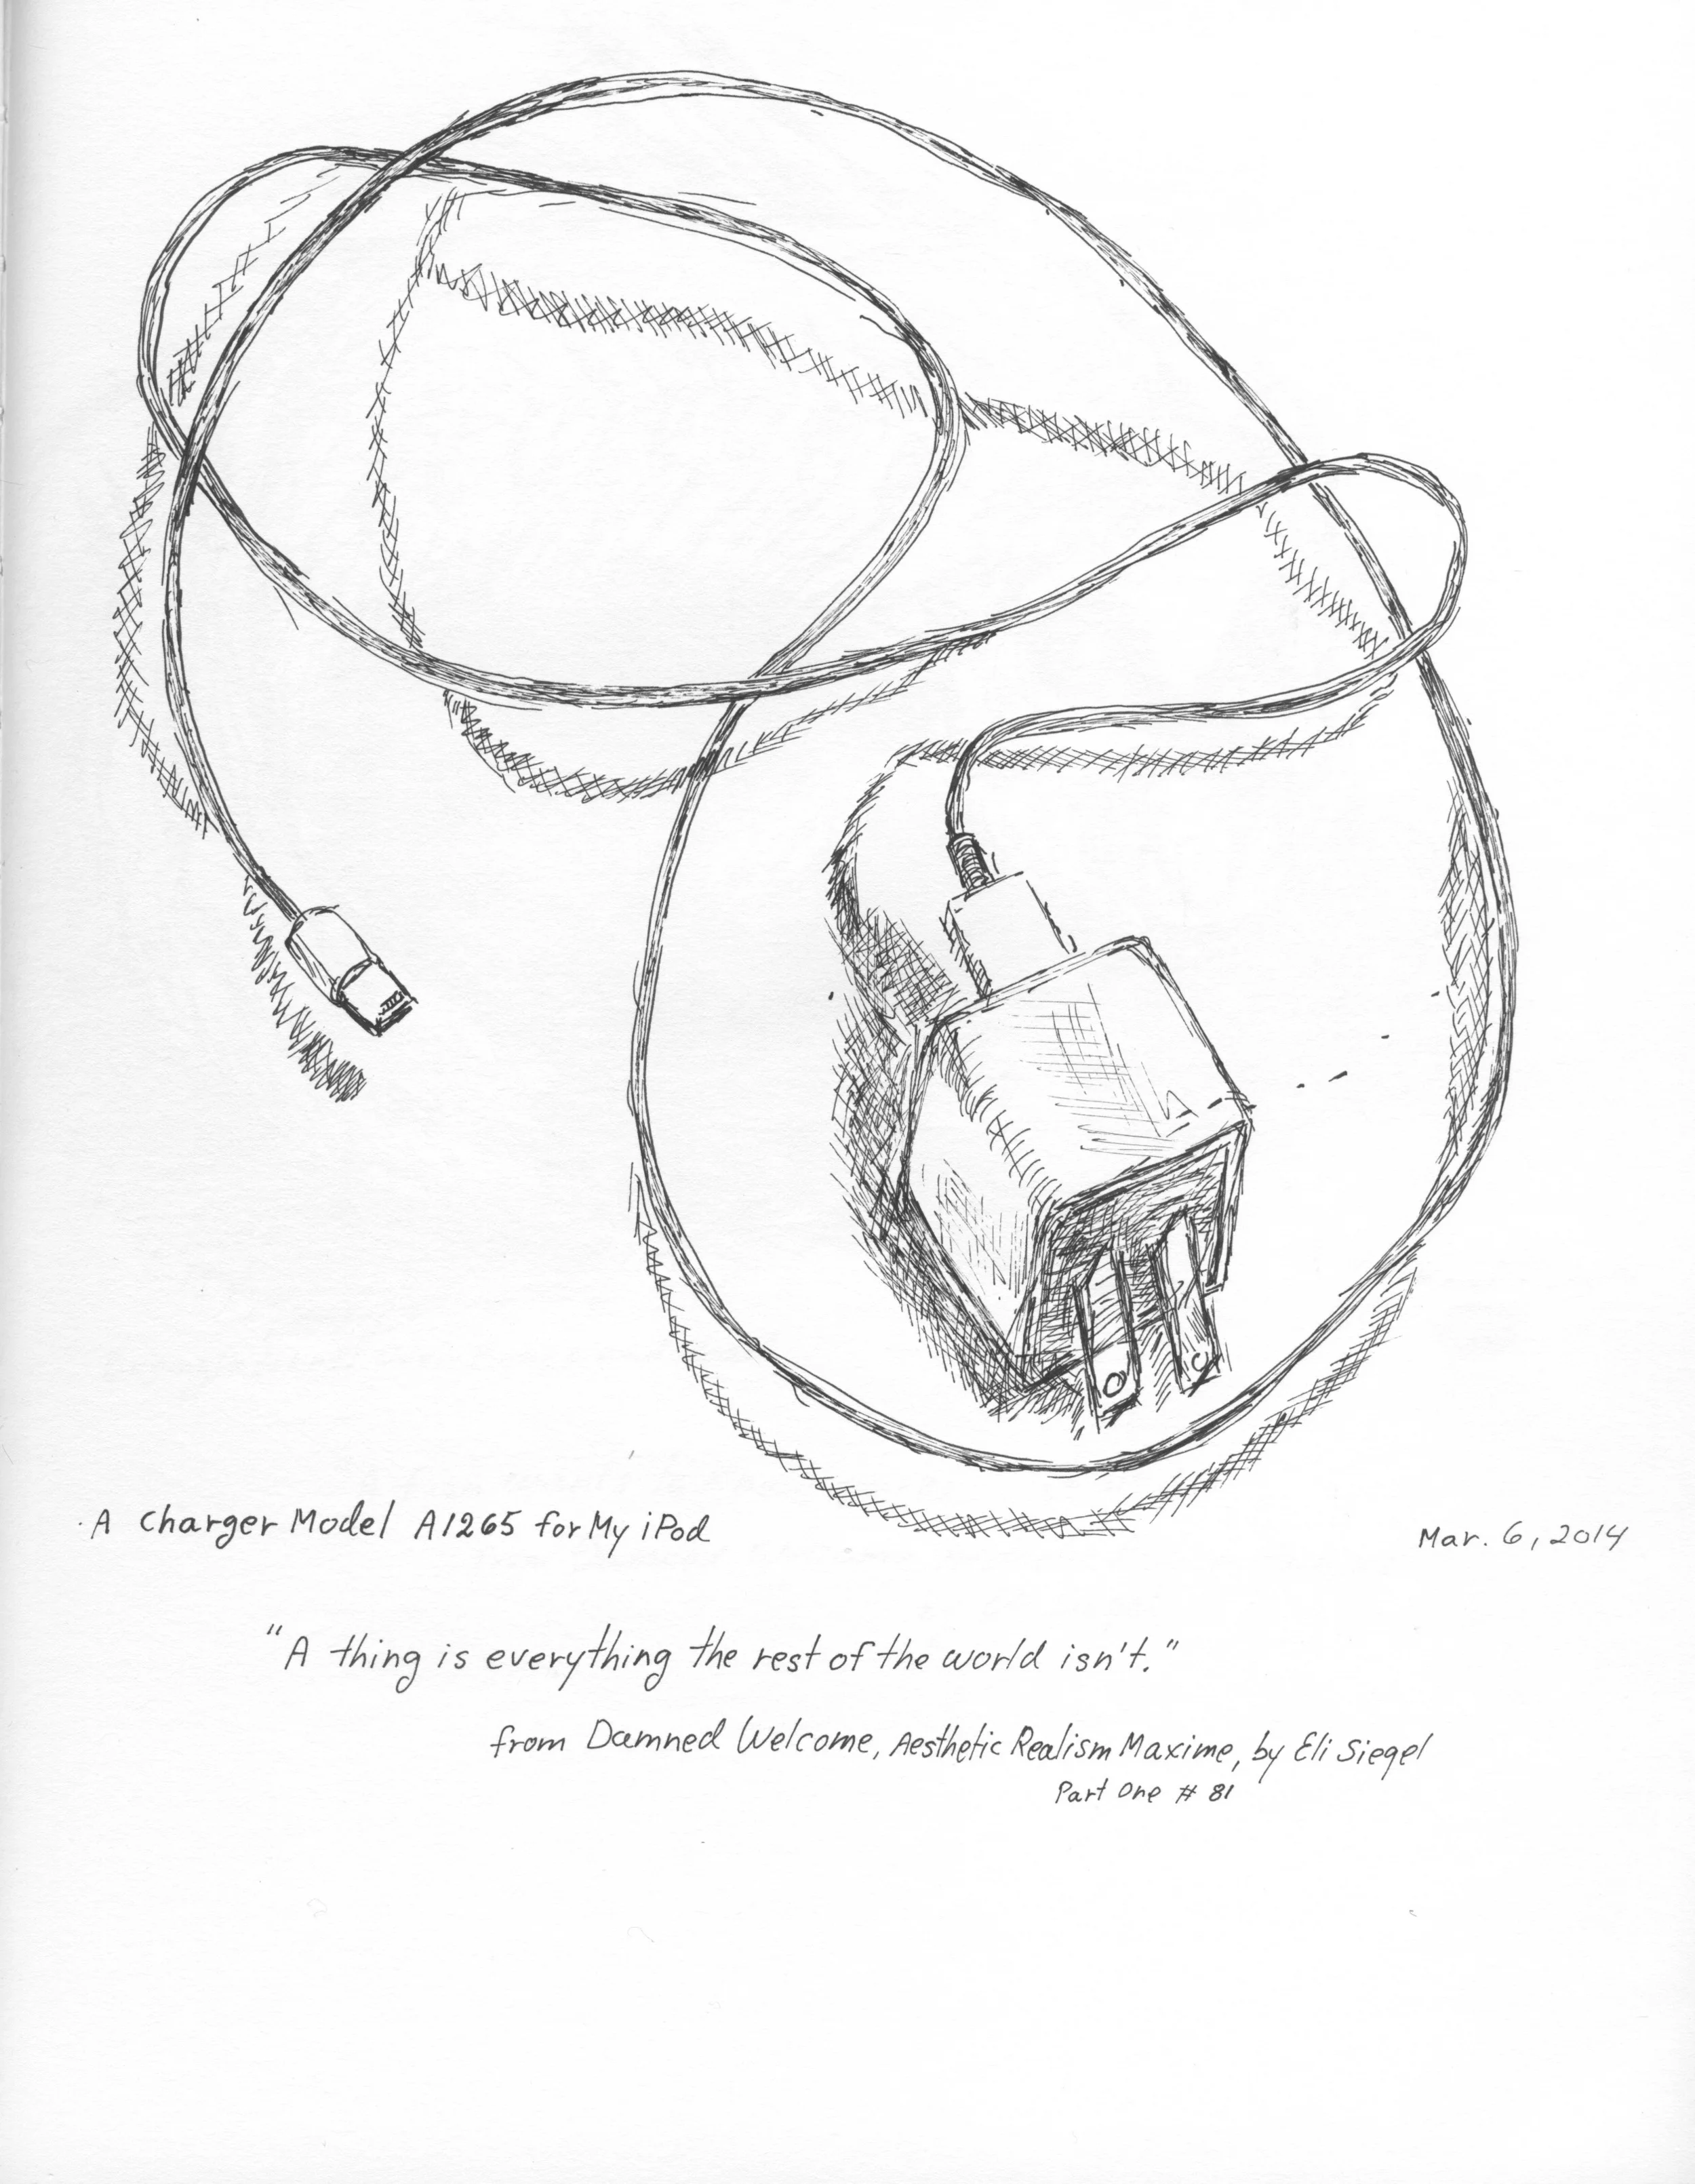 A Charger Model A1265 for My iPod
Mar. 6, 2014
"A thing is everything the rest of the world isn't."
from Damned Welcome, Aesthetic Realism Maxime, by Eli Siegel
Part One # 81